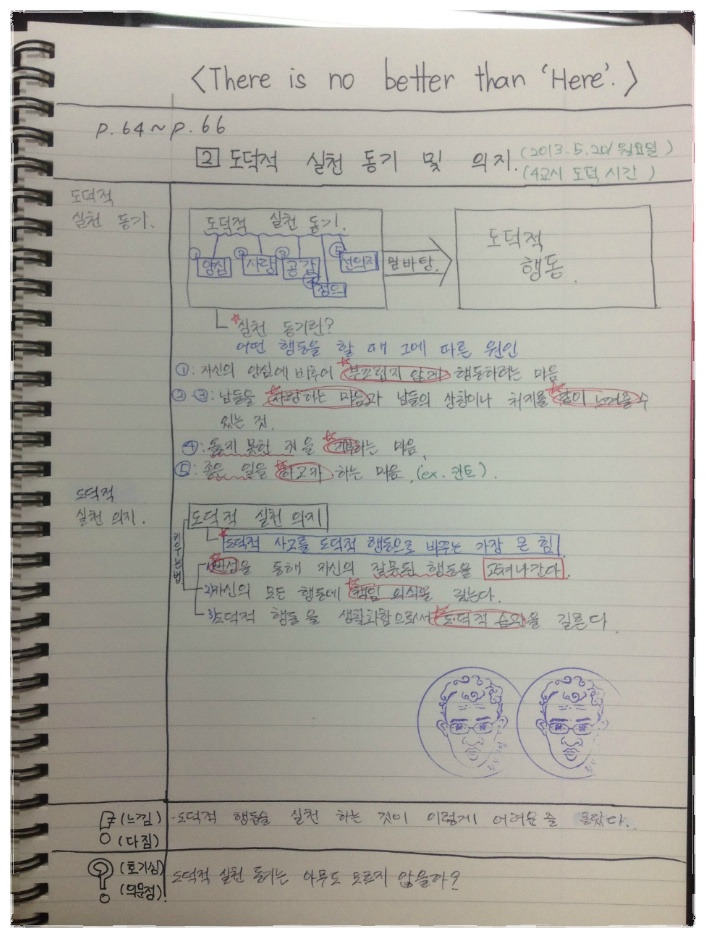 <There is no better than 'Here'.>
p.64~p.66
2 도덕적 실천 동기 및 의지.
(2013.5.20/월요일)
(4교시 도덕 시간)
도덕적
실천 동기.
도덕적 실천 동기.
① 양심
② 사랑
③ 공감
④ 정의
⑤ 선의지
밑바탕.
도덕적
행동.
*실천 동기란?
어떤 행동을 할 때 그에 따른 원인
①: 자신의 양심에 비추어 부끄럽지 않게 행동하려는 마음
② ③: 남들을 사랑하는 마음과 남들의 상황이나 처지를 같이 느껴줄 수
있는 것.
④: 옳지 못한 것을 하는 마음.
⑤: 좋은 일을 하고자 하는 마음. (ex. 칸트).
도덕적
실천 의지.
도덕적 실천 의지
도덕적 사고를 도덕적 행동으로 바꾸는 가장 큰 힘.
키우는법
1)반성을 통해 자신의 잘못된 행동을 고쳐나간다.
2)자신의 모든 행동에 책임 의식을 갖는다.
3)도덕적 행동을 생활화함으로써 도덕적 습관을 기른다.
(느낌)
(다짐)
·도덕적 행동을 실천 하는 것이 이렇게 어려운 줄 몰랐다.
(호기심)
(의문점)
도덕적 실천 동기는 아무도 모르지 않을까?